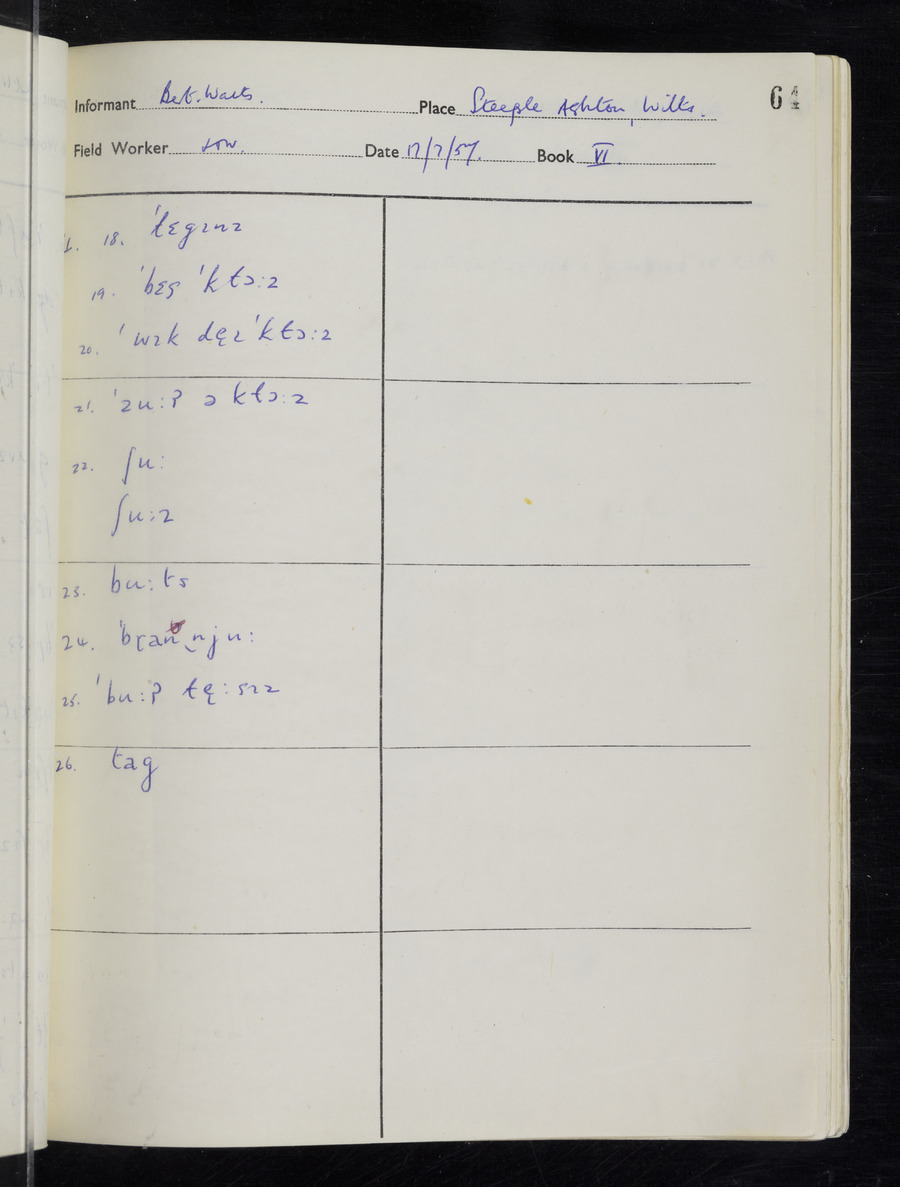 Informant Bert. Watts. Place Steeple Ashton, Wilts. 64
Field Worker Date 17/7/57. Book VI.
18. ˈlɛgɪnz
19. ˈbɛs ˈktɔ:z
20. ˈwɪk dɛɪ ˈktɔ:z
21. ˈzu:ʔ ə ktɔ:z
22. ʃu:
ʃu:z
23. bu:ts
24. ˈbɽan nju:
25. ˈbu:ʔ tɛ̨:sɪz
26. tag